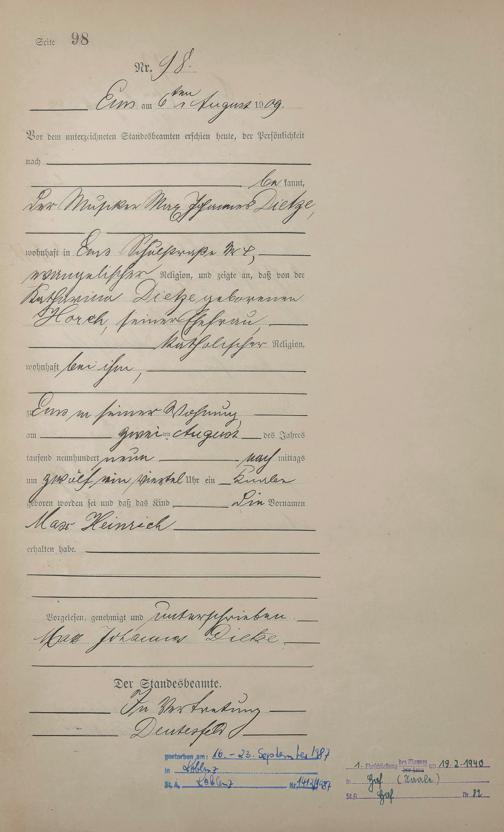 Seite 98
Nr. 98.
Ems am 6ten August 1909.
Vor dem unterzeichneten Standesbeamten erschien heute, der Persönlichkeit
nach
be kannt,
der Musiker Max Johannes Dietze,
wohnhaft in Ems Schulstraße No 4,
evangelischer Religion, und zeigte an, daß von der
Katharina Dietze geborenen
Horch, seiner Ehefrau,
katholischer Religion,
wohnhaft bei ihm,
zu Ems in seiner Wohnung
am zweiten August des Jahres
tausend neunhundert neun nach mittags
um zwölf ein viertel Uhr ein Knabe
geboren worden sei und daß das Kind die Vornamen
Max Heinrich
erhalten habe.
Vorgelesen, genehmigt und unterschrieben
Max Johannes Dietze
Der Standesbeamte.
In Vertretung
gestorben am: 16. - 23. September 1987
in Koblenz
St.A. Koblenz Nr.
1. Eheschließung des Mannes am 19.2.1940
in Hof (Saale)
St.A. Hof Nr. 82